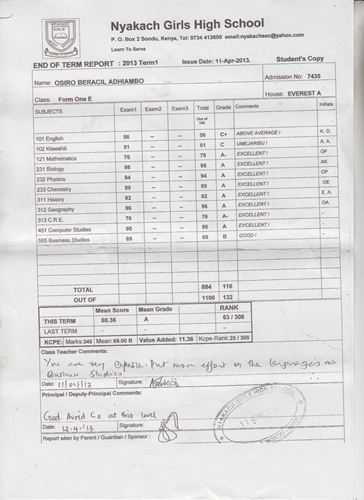 Nyakach Girls High School
P. O. Box 2 Sondu, Kenya, Tel: 0734 413600 email:nyakachsec@yahoo.com
Learn To Serve
END OF TERM REPORT : 2013 Term1 Issue Date: 11-Apr-2013. Student's Copy
Name: OSIRO BERACIL ADHIAMBO Admission No: 7435
Class: Form One E House: EVEREST A
SUBJECTS Exam1 Exam2 Exam3 Total Grade Comments Initials
Out of 100
101 English 56 -- -- 56 C+ ABOVE AVERAGE ! K. O.
102 Kiswahili 51 -- -- 51 C UMEJARIBU ! A. A.
121 Mathematics 78 -- -- 78 A- EXCELLENT ! OF
231 Biology 98 -- -- 98 A EXCELLENT ! AK
232 Physics 94 -- -- 94 A EXCELLENT ! CP
233 Chemistry 89 -- -- 89 A EXCELLENT ! OE
311 History 82 -- -- 82 A EXCELLENT ! E. A.
312 Geography 96 -- -- 96 A EXCELLENT ! OA
313 C.R.E. 76 -- -- 76 A- EXCELLENT !
451 Computer Studies 95 -- -- 95 A EXCELLENT !
565 Business Studies 69 -- -- 69 B GOOD !
TOTAL 884 116
OUT OF 1100 132
Mean Score Mean Grade RANK
THIS TERM 80.36 A 63 / 308
LAST TERM -- --
KCPE: Marks:345 Mean:69.00 B Value Added: 11.36 Kcpe-Rank:25 / 308
Class Teacher Comments:
You are very capable. Put more effort in the languages and
Business Studies
Date: 11/04/13 Signature:
Principal / Deputy-Principal Comments:
Good. Avoid Cs at this level
Date: 12.4.13 Signature:
Report seen by Parent / Guardian / Sponsor :
NYAKACH GIRLS HIGH